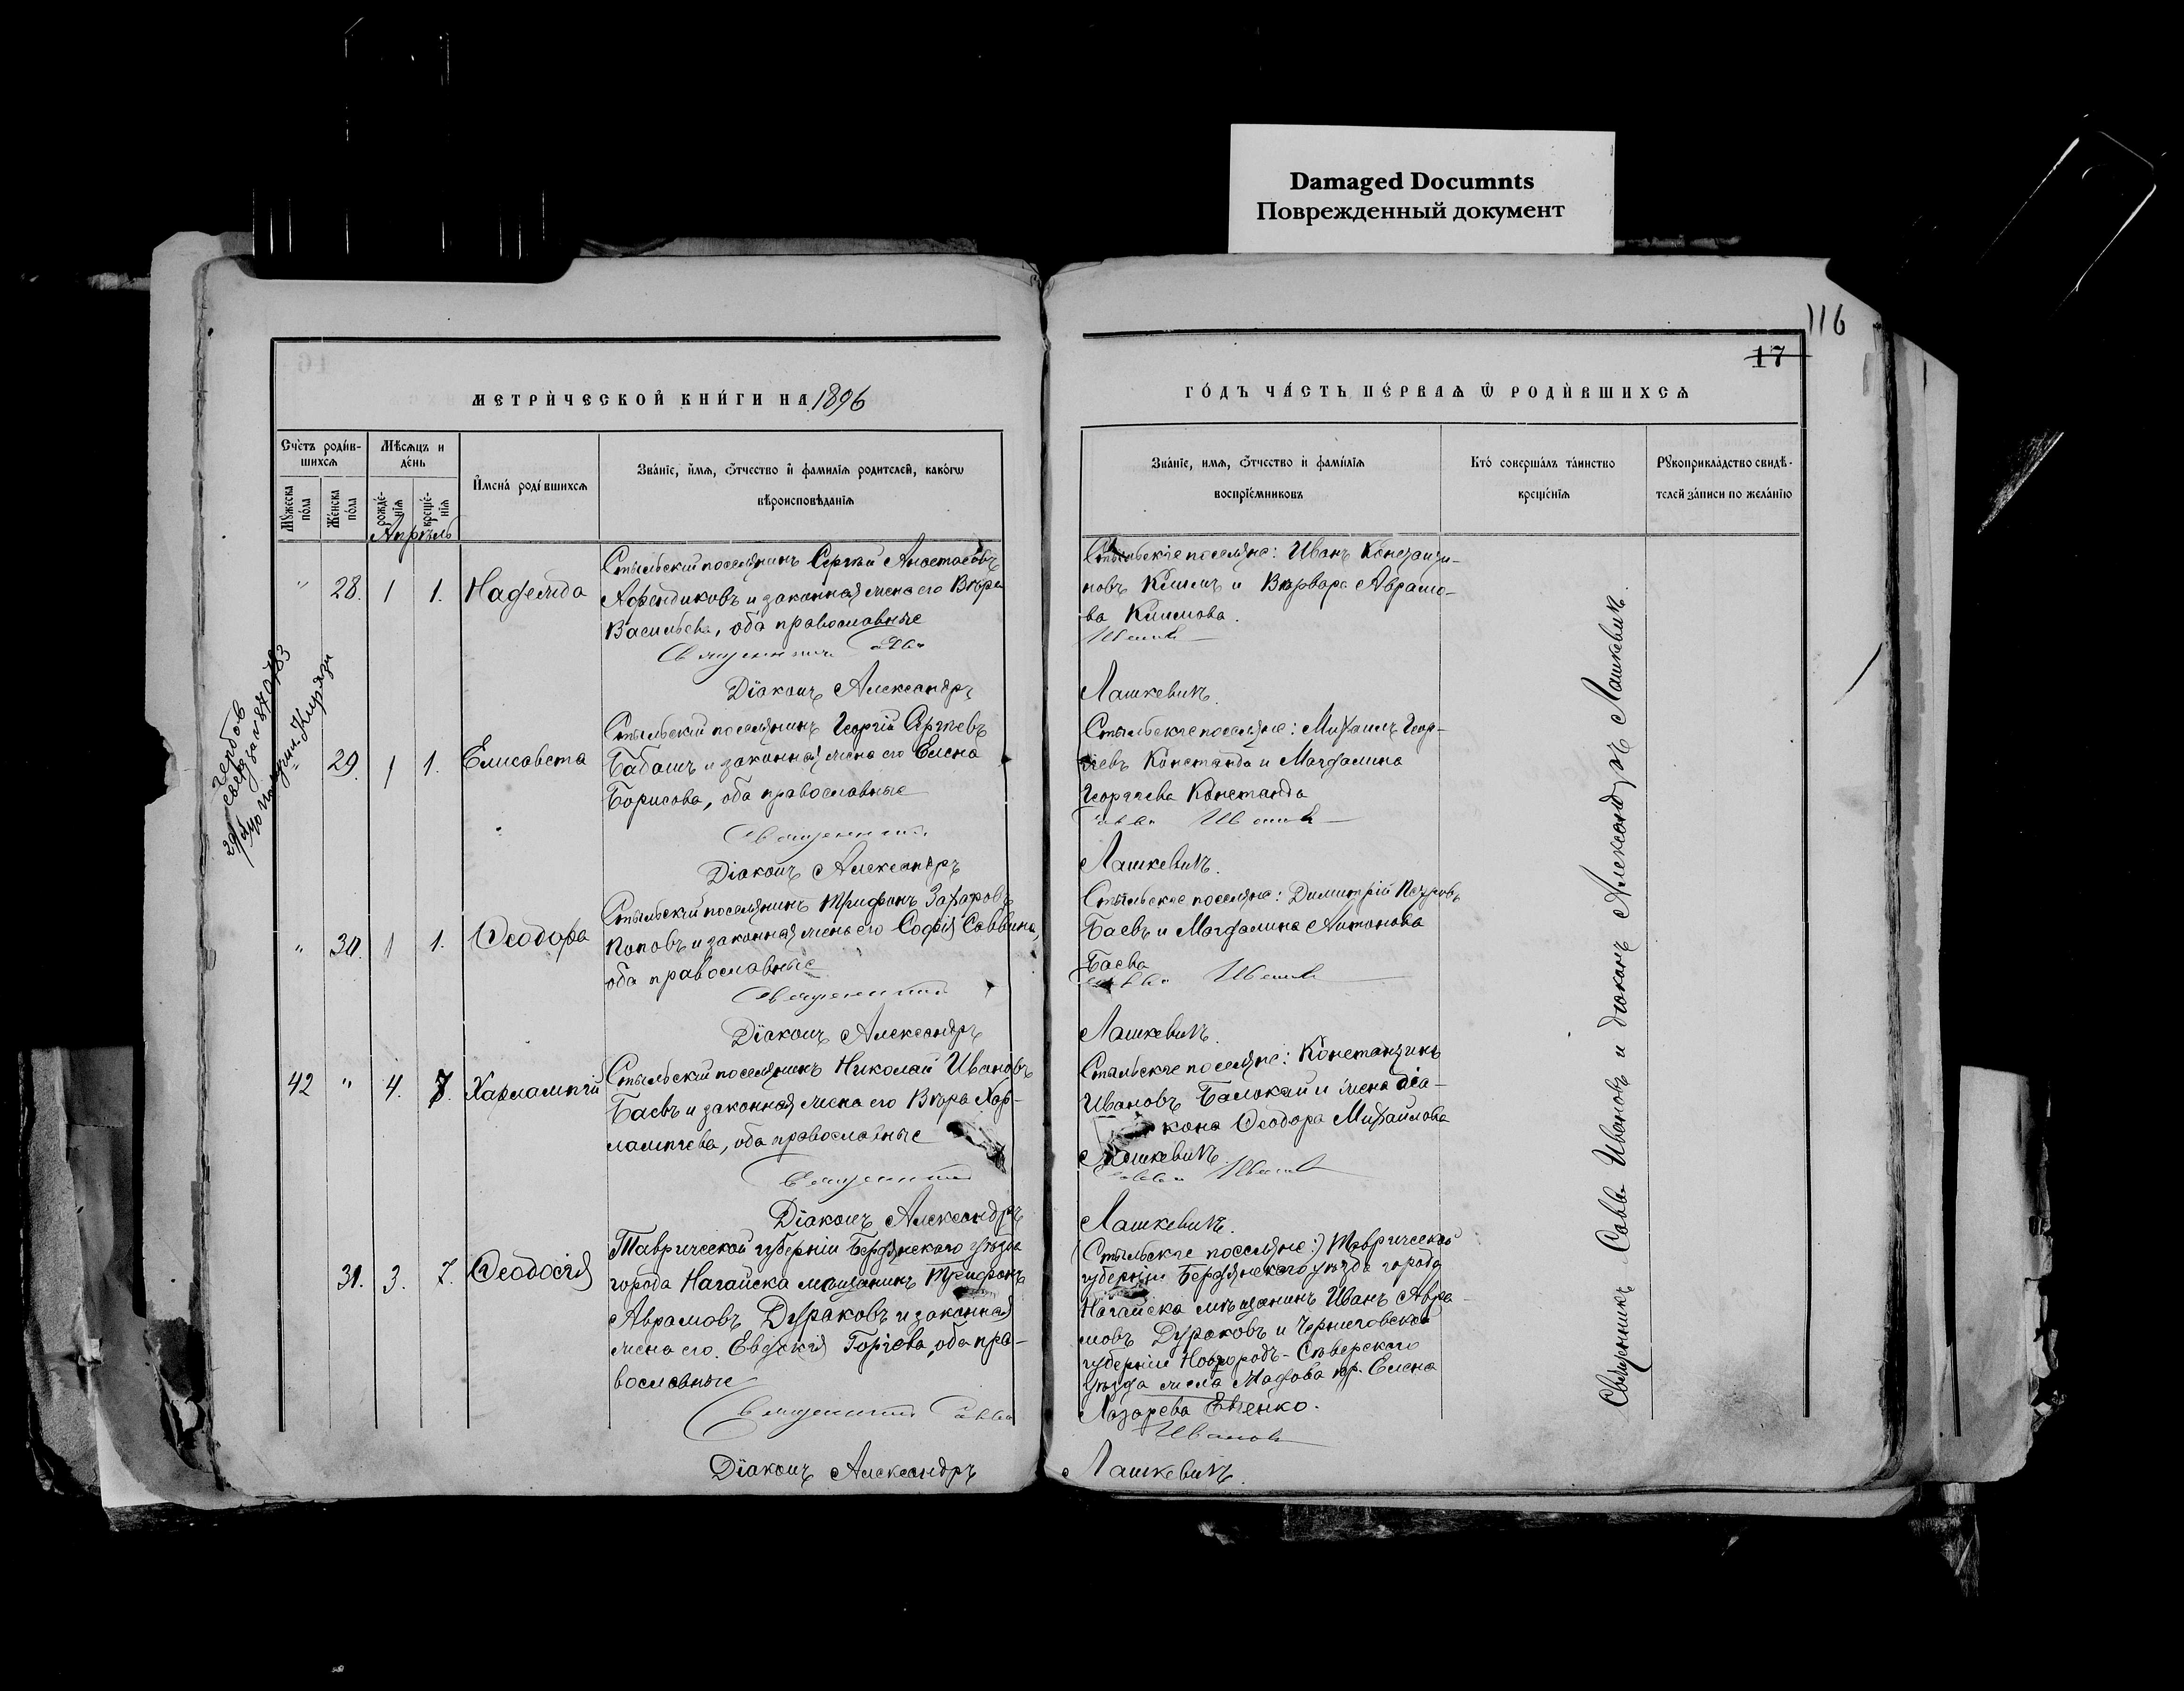 Damaged Documnts
Поврежденный документ
116
17
МЕТРИЧЕСКОЙ КНИГИ НА 1896
ГОДЪ ЧАСТЬ ПЕРВАѦ Ѿ РОДИВШИХСѦ
Счетъ родив-
шихсѧ
Мѣсѧцъ и
день
Имена родившихсѧ
Званіе, имѧ, ѻтчество и фамиліѧ родителей, какогѡ
вѣроисповѣданіѧ
Мужеска
пола
Женска
пола
рожде-
ніѧ
креще-
ніѧ
Званіе, имѧ, ѻтчество и фамиліѧ
воспріемниковъ
Кто совершалъ таинство
крещеніѧ
Рукоприкладство свидѣ-
телей записи по желанію
Апрѣль
" 28. 1 1. Надежда
Стыльскій поселянинъ Сергѣй Анастасовъ
Афендиковъ и законная жена его Вѣра
Васильева, оба православные
Священникъ Савва
Діаконъ Александръ
Стыльскіе поселяне: Иванъ Константи-
новъ Климъ и Варвара Аврамо-
ва Климова.
Ивановъ
Лашкевичъ.
29. 1 1. Елисавета
Стыльскій поселянинъ Георгій Сергѣевъ
Бабашъ и законная жена его Елена
Борисова, оба православные
Священникъ
Діаконъ Александръ
Стыльскіе поселяне: Михаилъ Геор-
гіевъ Константа и Магдалина
Георгіева Константа
Савва Ивановъ
Лашкевичъ.
" 30. 1 1. Ѳеодора
Стыльскій поселянинъ Трифонъ Захаровъ
Поповъ и законная жена его Софія Саввина,
оба православные
Священникъ
Діаконъ Александръ
Стыльскіе поселяне: Димитрій Петровъ
Баевъ и Магдалина Антонова
Баева
Савва Ивановъ
Лашкевичъ.
42 " 4. 7. Харлампій
Стыльскій поселянинъ Николай Ивановъ
Баевъ и законная жена его Вѣра Хар-
лампіева, оба православные
Священникъ
Діаконъ Александръ
Стыльскіе поселяне: Константинъ
Ивановъ Балокай и жена діа-
кона Ѳеодора Михайлова
Лашкевичъ.
Савва Ивановъ
Лашкевичъ.
31. 3. 7. Ѳеодосія
Таврической губерніи Бердянского уѣзда
города Нагайска мѣщанинъ Трифонъ
Аврамовъ Дураковъ и законная
жена его Евдокія Горіева, оба пра-
вославные
Священникъ Савва
Діаконъ Александръ
(Стыльскіе поселяне:) Таврической
губерніи Бердянского уѣзда города
Нагайска мѣщанинъ Иванъ Авра-
мовъ Дураковъ и Черниговской
губерніи Новгородъ-Сѣверского
уѣзда Елена
Лазарева
Ивановъ
Лашкевичъ.
Священникъ Савва Ивановъ и діаконъ Александръ Лашкевичъ.